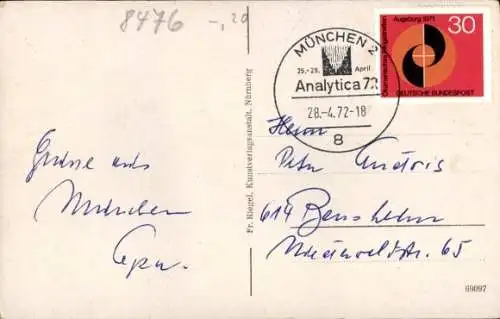 8476 -,20
MÜNCHEN 2
25.-28. April
Analytica 72
28.-4.72-18
8
Ökumenisches Pfingsttreffen
Augsburg 1971
30
DEUTSCHE BUNDESPOST
Grüsse aus
München
Herrn
Peter
614 Bensheim
Niederwaldstr. 65
Fr. Riegel, Kunstverlagsanstalt, Nürnberg
69097